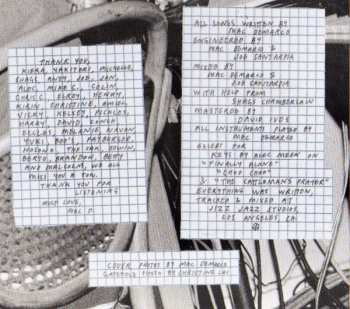 THANK YOU,
KIERA, MICHELLE,
SHAGS, ANDY, JOE, JON,
ALEC, MIKE C., COLIN,
CHRIS C., HENRY,
KIRIN, CHRISTINE,
VICKY, KELSEY, NICHOLAS,
HARRY, DAVID,
DELLAS, MELANIE,
YUKI,
HOSONO, THE EDWIN,
BERYO, BRANDON, BETTY
AND MALCOLM, WE ALL
MISS YOU A TON.
THANK YOU FOR
LISTENING
MUCH LOVE,
MAC D
ALL SONGS WRITTEN BY
MAC DEMARCO
ENGINEERED BY
MAC DEMARCO &
JOE SANTARPIA
MIXED BY
MAC DEMARCO &
JOE SANTARPIA
WITH HELP FROM
SHAGS CHAMBERLAIN
MASTERED BY
DAVID IVES
ALL INSTRUMENTS PLAYED BY
MAC DEMARCO
EXCEPT FOR
KEYS BY ALEC MEEN ON
"FINALLY ALONE"
"CHOO CHOO"
& "THE CATTLEMAN'S PRAYER"
EVERYTHING WAS WRITTEN,
TRACKED & MIXED AT
JIZZ JAZZ STUDIOS,
LOS ANGELES, CA
COVER PHOTOS BY MAC DEMARCO
GATEFOLD PHOTO BY CHRISTINE LAI